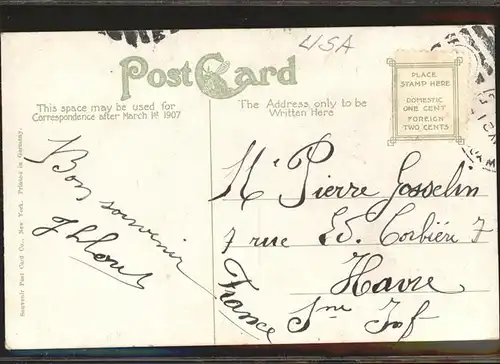 USA
Post Card
This space may be used for
Correspondence after March 1st 1907
The Address only to be
Written Here
PLACE
STAMP HERE
DOMESTIC
ONE CENT
FOREIGN
TWO CENTS
Souvenir Post Card Co., New York. Printed in Germany.
Bon souvenir
Mr Pierre Gosselin
7 rue Ed. Corbière 7
Havre
Sne Inf
France